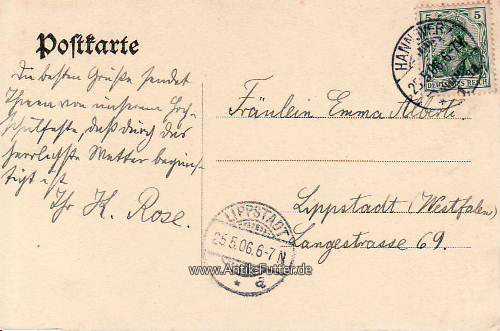 Postkarte
Die besten Grüße sendet
Ihnen von unserem Hoch-
schulfeste, daß durch das
herrlichste Wetter begüns-
tigt ist
Ihr K. Rose.
Fräulein Emma Alberti
Lippstadt (Westfalen)
Langestrasse 69.
5 5
HANNOVER
LIPPSTADT
25.5.06.6-7N
* a
www.Antik-Futter.de